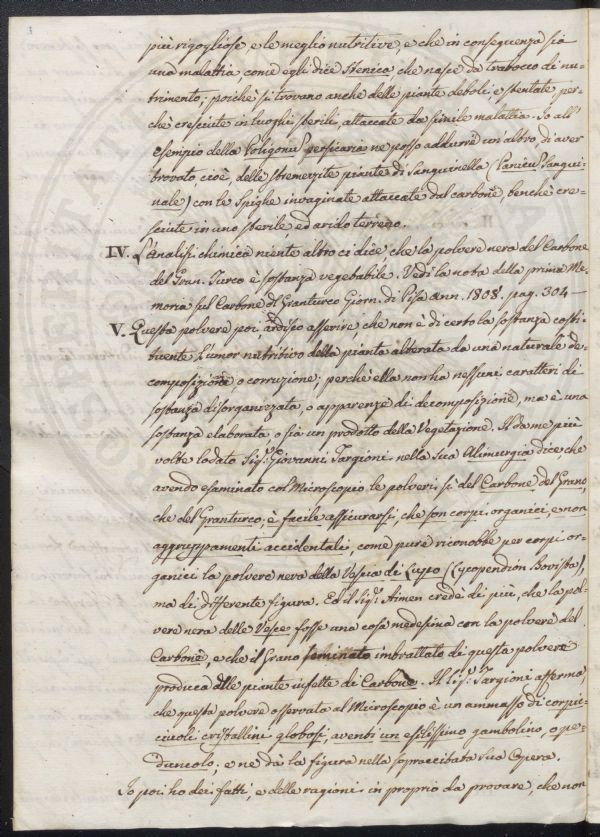 più rigogliose, e le meglio nutritive, e che in conseguenza sia
una malattia come egli dice Stenica che nasce da trabocco di nu-
trimento; poichè si trovano anche delle piante deboli, e stentate per-
chè cresciute in luoghi sterili, attaccate da simile malattia. Io all'
esempio della Poligonu Persicaria ne posso addurre un'altro, di aver
trovato cioè delle piante di Sanguinella (Panicu Sangui-
nale) con le spighe invaginate attaccate dal carbone benchè cre-
sciute in uno sterile, ed arido terreno.
IV. L'Analisi chimica niente altro ci dice, che la polvere nera del Carbone
del Gran-Turco è sostanza vegetabile. Vedi la nota della prima Me-
moria sul Carbone del Granturco Giorn. di Pisa ann. 1808. pag. 304 —
V. Questa polvere poi, ardisco asserire che non è di certo la sostanza costi-
tuente l'umor nutritivo della pianta alterata da una naturale de-
composizione o corruzione; perchè ella non ha nessuni caratteri di
sostanza disorganizzata, o apparenze di decomposizione, ma è una
sostanza elaborata o sia un prodotto della Vegetazione. Il da me più
volte lodato Sig.r Giovanni Targioni nella sua Alimurgia dice che
avendo esaminato col Microscopio le polveri sì del Carbone del Grano,
che del Granturco; è facile assicurarsi, che son corpi organici, e non
aggruppamenti accidentali, come pure riconobbe per corpi or-
ganici la polvere nera della Vescia di Lupo (Lycopendion Bovista),
ma di differente figura. Ed il Sig.r Aimen crede di più che la pol-
vere nera delle Vesce fosse una cosa medesima con la polvere del
Carbone, e che il Grano seminato imbrattato di questa polvere
produca delle piante infette di Carbone. Il Sig.r Targioni afferma,
che questa polvere osservata al Microscopio è un ammasso di corpic-
ciuoli cristallini globosi, aventi un esilissimo gambolino, o pe-
duncolo; e ne dà la figura nella sopraccitata sua Opera.
Io poi ho dei fatti, e delle ragioni in proprio da provare, che non